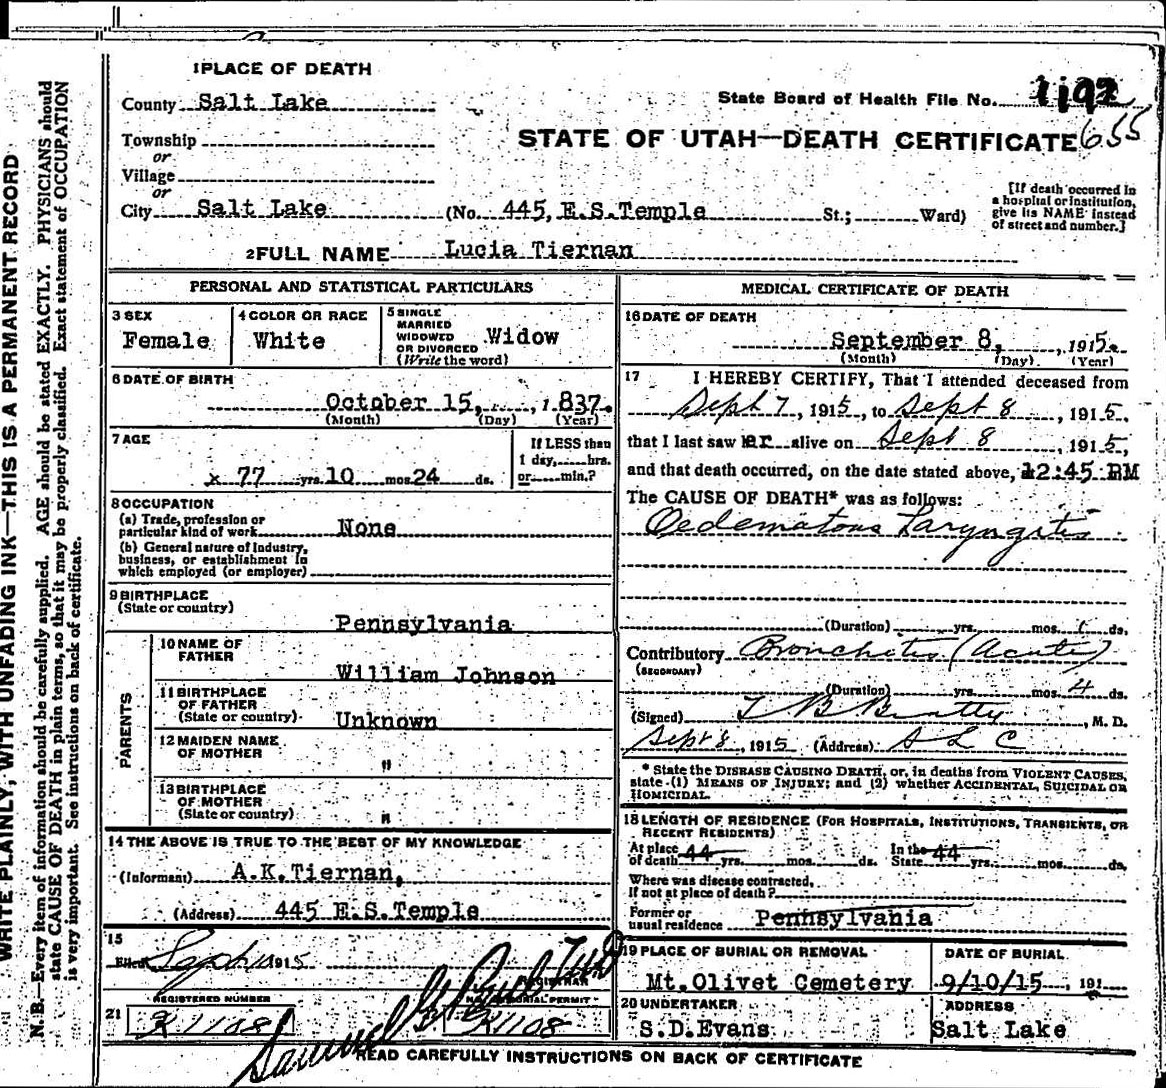 1 PLACE OF DEATH
County Salt Lake
State Board of Health File No. 1192
Township
or
STATE OF UTAH—DEATH CERTIFICATE 655
Village
or
City Salt Lake (No. 445, E.S.Temple St.; Ward)
[If death occurred in
a hospital or institution,
give its NAME instead
of street and number.]
2 FULL NAME Lucia Tiernan
PERSONAL AND STATISTICAL PARTICULARS
3 SEX
Female
4 COLOR OR RACE
White
5 SINGLE
MARRIED
WIDOWED
OR DIVORCED
(Write the word)
Widow
6 DATE OF BIRTH
October 15, 1837.
(Month) (Day) (Year)
7 AGE
77 yrs. 10 mos. 24 ds.
If LESS than
1 day, hrs.
or min.?
8 OCCUPATION
(a) Trade, profession or
particular kind of work None
(b) General nature of Industry,
business, or establishment in
which employed (or employer)
9 BIRTHPLACE
(State or country)
Pennsylvania
PARENTS
10 NAME OF
FATHER
William Johnson
11 BIRTHPLACE
OF FATHER
(State or country)
Unknown
12 MAIDEN NAME
OF MOTHER
"
13 BIRTHPLACE
OF MOTHER
(State or country)
"
14 THE ABOVE IS TRUE TO THE BEST OF MY KNOWLEDGE
(Informant) A.K.Tiernan,
(Address) 445 E.S.Temple
15
Filed Sept 1915
REGISTRAR
REGISTERED NUMBER
BURIAL PERMIT
21
K1108
K1108
MEDICAL CERTIFICATE OF DEATH
16 DATE OF DEATH
September 8, 1915.
(Month) (Day) (Year)
17 I HEREBY CERTIFY, That I attended deceased from
Sept 7, 1915, to Sept 8, 1915,
that I last saw her alive on Sept 8, 1915,
and that death occurred, on the date stated above, at 12:45 PM
The CAUSE OF DEATH* was as follows:
Oedematous Laryngitis
(Duration) yrs. mos. ds.
Contributory Bronchitis (Acute)
(SECONDARY)
(Duration) yrs. mos. 4 ds.
(Signed) T B Beatty, M. D.
Sept 8, 1915 (Address) S L C
* State the DISEASE CAUSING DEATH, or, in deaths from VIOLENT CAUSES,
state (1) MEANS OF INJURY; and (2) whether ACCIDENTAL, SUICIDAL OR
HOMICIDAL.
18 LENGTH OF RESIDENCE (FOR HOSPITALS, INSTITUTIONS, TRANSIENTS, OR
RECENT RESIDENTS)
At place
of death 44 yrs. mos. ds.
In the
State 44 yrs. mos. ds.
Where was disease contracted,
If not at place of death?
Former or
usual residence Pennsylvania
19 PLACE OF BURIAL OR REMOVAL
Mt.Olivet Cemetery
DATE OF BURIAL
9/10/15, 191
20 UNDERTAKER
S.D.Evans
ADDRESS
Salt Lake
READ CAREFULLY INSTRUCTIONS ON BACK OF CERTIFICATE
WRITE PLAINLY, WITH UNFADING INK—THIS IS A PERMANENT RECORD
N. B.—Every item of information should be carefully supplied. AGE should be stated EXACTLY. PHYSICIANS should
state CAUSE OF DEATH in plain terms, so that it may be properly classified. Exact statement of OCCUPATION
is very important. See instructions on back of certificate.